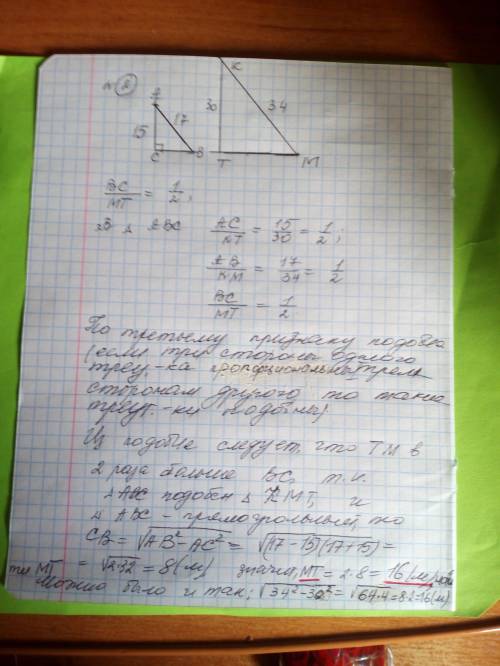 № 2
A
17
15
C
B
K
30
34
T
M
BC/MT = 1/2;
△ ABC AC/KT = 15/30 = 1/2;
AB/KM = 17/34 = 1/2
BC/MT = 1/2
По третьему признаку подобия
(если три стороны одного
треу-ка пропорциональны трем
сторонам другого, то такие
треуг.-ки подобны)
Из подобия следует, что TM в
2 раза больше BC, т.к.
△ABC подобен △ KMT, и
△ ABC - прямоугольный, то
CB = √AB² - AC² = √(17-15)(17+15) =
= √2·32 = 8(м) значит, MT = 2·8 = 16(м)
MT можно было и так: √34²-30² = √64·4 = 8·2 = 16(м)